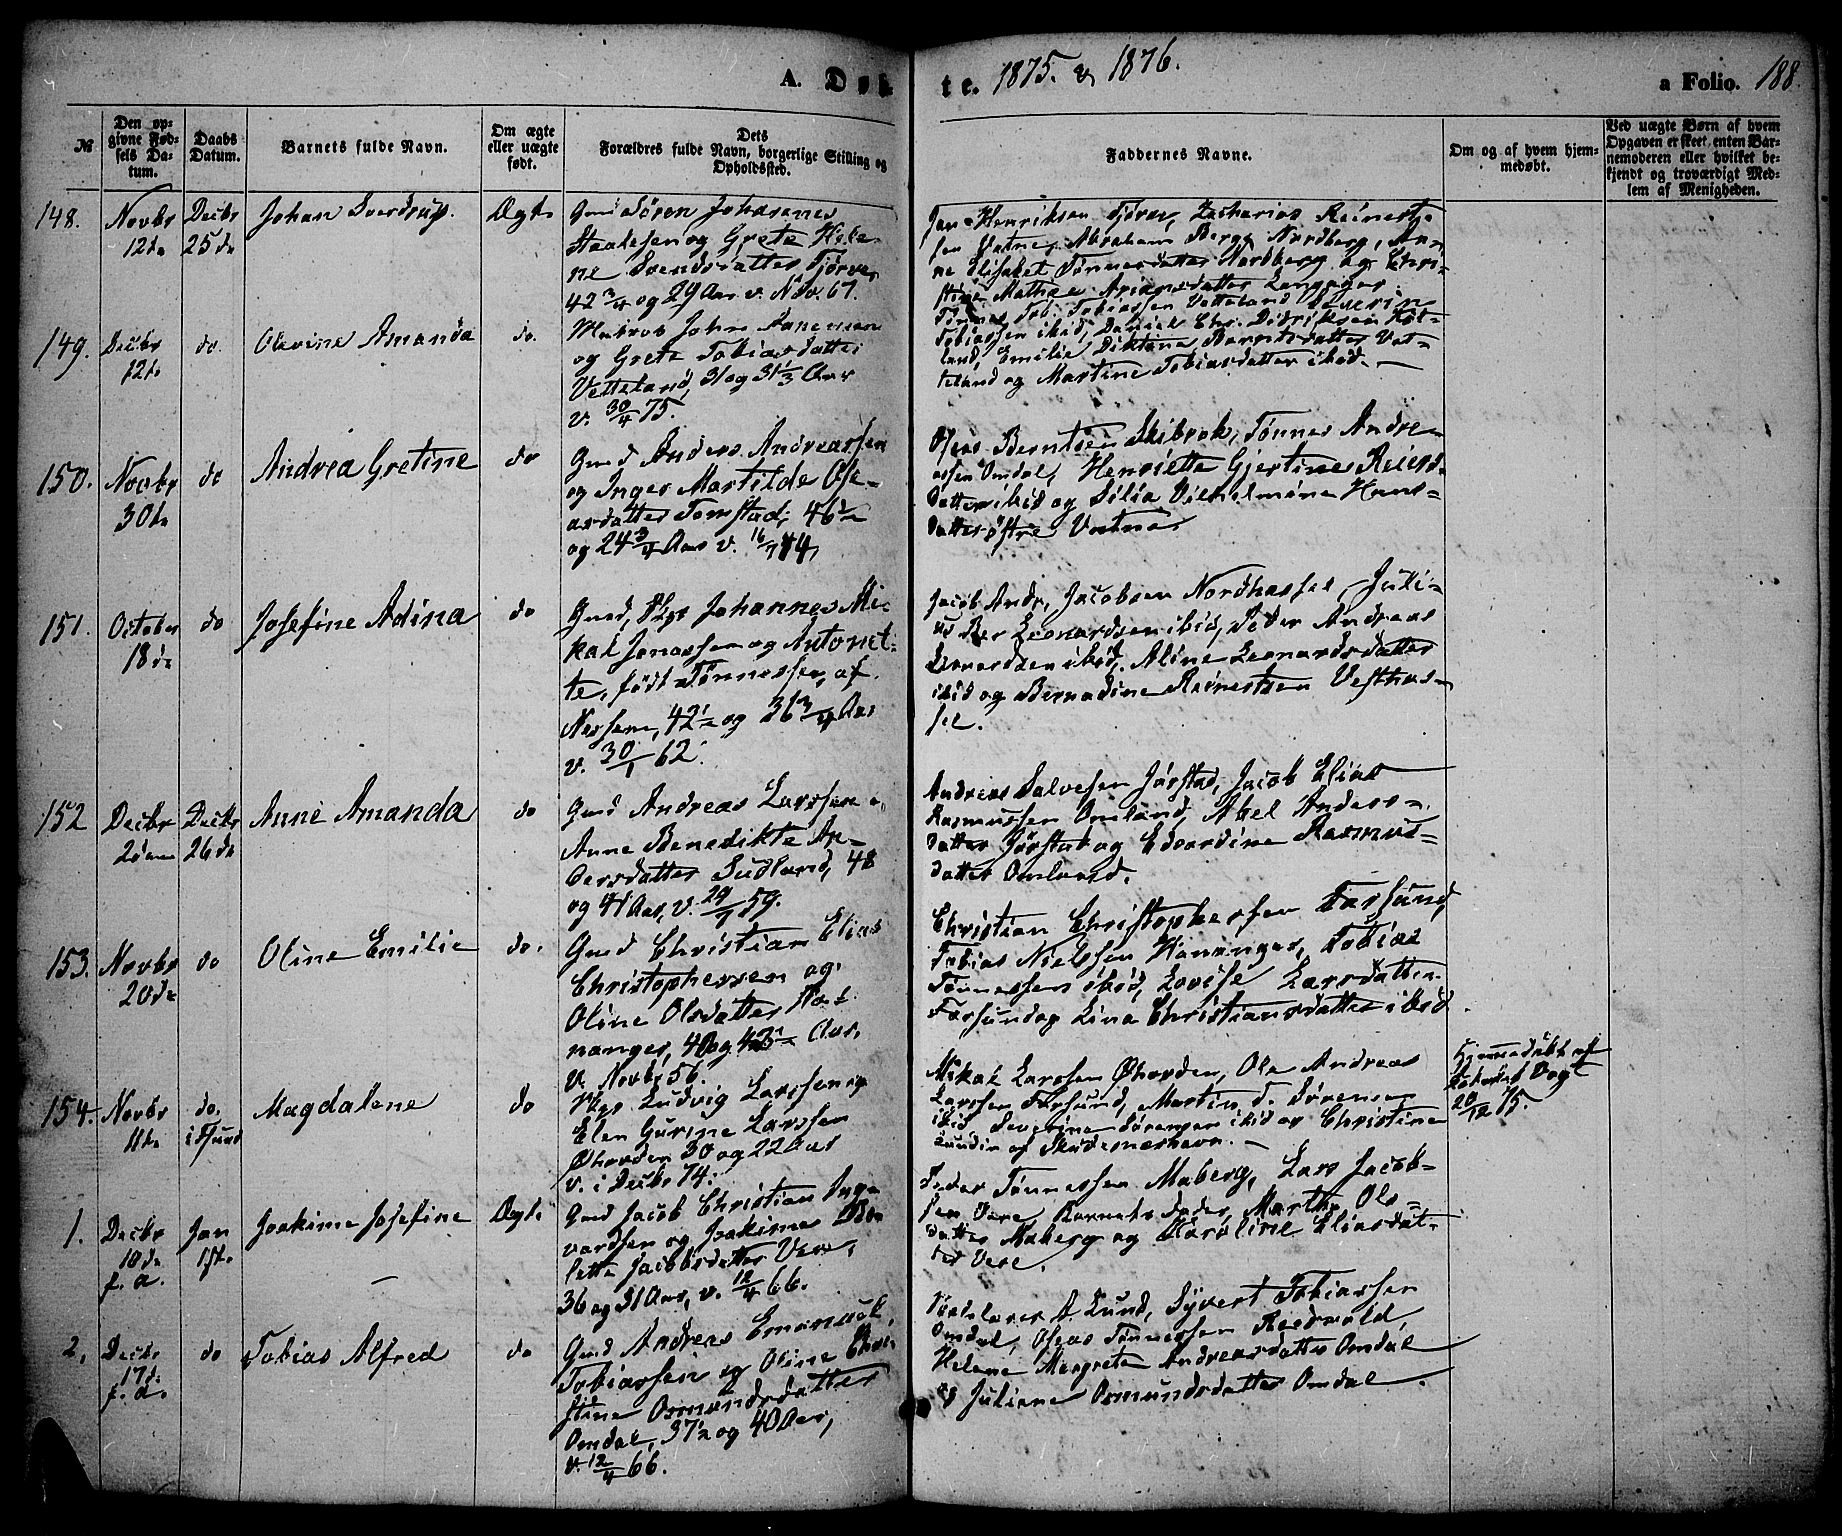 A. Døb
te. 1875. & 1876.
a Folio. 188
№
Den op-
givne Fød-
sels Da-
tum.
Daabs
Datum.
Barnets fulde Navn.
Om ægte
eller uægte
født.
Dets
Forældres fulde Navn, borgerlige Stilling og
Opholdssted.
Faddernes Navne.
Om og af hvem hjem-
medøbt.
Ved uægte Børn af hvem
Opgaven er skeet, enten Bar-
nemoderen eller hvilket be-
kjendt og troværdigt Med-
lem af Menigheden.
148.
Novbr
12te
Decbr
25de
Johan Sverdrup.
Ægte
Gmd Søren Johannes
Staalesen og Grete Hele-
ne Svendsdatter Tjørve,
42 3/4 og 29 Aar v. Nov. 67.
Jan Henriksen Tjørve, Zacharias Reinert-
sen Vatne, Abraham Berg Nordberg, An-
ne Elisabet Tønnesdatter Nordberg og Chri-
stine Mathea Ariansdatter
149.
Decbr
12te
do.
Olevine Amanda
do.
John
og Grete Tobiasdatter
Vetteland, 31 og 31 1/3 Aar
v. 30/4 75.
Tønnes Tob. Tobiassen Vetteland, Severin
Tobiassen ibid, Daniel Chr. Didriksen
land, Emilie Diktane Berntsdatter Vet-
teland og Martine Tobiasdatter ibid.
150.
Novbr
30te
do
Andrea Gretine
do
Gmd Anders Andreassen
og Inger Martilde Ose-
asdatter Tomstad, 46 1/2
og 24 3/4 Aar v. 16/7 74,
Oseas Berntsen Skibrok, Tønnes Andre-
assen Omdal, Henriette Gjertine Reiers-
datter ibid og Silia Vilhelmine Hans-
datter østre Vatne
151.
October
18de
do
Josefine Adina
do
Gmd, Johannes Mi-
kal Jonassen og Antonet-
te, født Tønnessen, af
42 1/2 og 36 3/4 Aar
v. 30/1 62.
Jacob Andr. Jacobsen Nordhassel, Juli-
us Ber Leonardsen ibid, Peter Andreas
Leonardsen ibid, Aline Leonardsdatter
ibid og Bernadine Reinertsen Vesthas-
sel.
152
Decbr
Decbr
26de
Anne Amanda
do
Gmd Andreas Larssen o.
Anne Benedikte An-
dersdatter Sudland, 48
og 41 Aar, v. 29/9 59.
Andreas Salvesen Jørstad, Jacob Elias
Rasmussen Omland, Abel Anders-
datter Jørstad og Edvardine Rasmus-
datter Omland.
153.
Novbr
20de
do
Oline Emilie
do.
Gmd Christian Elias
Christophersen og
Oline Olsdatter Hæ-
nanger, 40 og 43 1/2 Aar,
v. Novbr 56.
Christian Christophersen Farsund,
Tobias Nielssen Hananger, Tobias
Tønnessen ibid, Lovise Larsdatter
Farsund og Lina Christiansdatter ibid.
154.
Novbr
11te
do.
i Fsund
Magdalene
do
Ludvig Larssen og
Elen Gurine Larssen
Øhavden 30 og 22 Aar
v. i Decbr 74.
Mikal Larssen Øhavden, Ole Andreas
Larssen Farsund, Martin T. Sørensen
ibid, Severine Sørensen ibid og Christine
Lundin af Skudesnæshavn.
Hjemmedøbt af
Vogt
20/12 75.
1.
Decbr
18de
f. a.
Jan
1ste
Joakime Josefine
Ægte
Gmd Jacob Christian Ing-
vardsen og Joakime Oden
lette Jacobsdatter Vere,
36 og 31 Aar, v. 12/4 66.
Peder Tønnessen Maberg, Lars Jacob-
sen Vere Barnets Fader, Marthe Ols-
datter Maberg og Karoline Eliasdat-
ter Vere.
2.
Decbr
17de
f. a.
do
Tobias Alfred
do
Gmd Andreas Emanuel
Tobiassen og Oline Chri-
stine Osmundsdatter
Omdal, 37 1/2 og 40 Aar,
v. 12/4 66.
A. Lund, Syvert Tobiassen
Omdal, Oseas Tønnessen
Helene Margrete Andreasdatter Omdal
og Juliane Osmundsdatter Omdal.